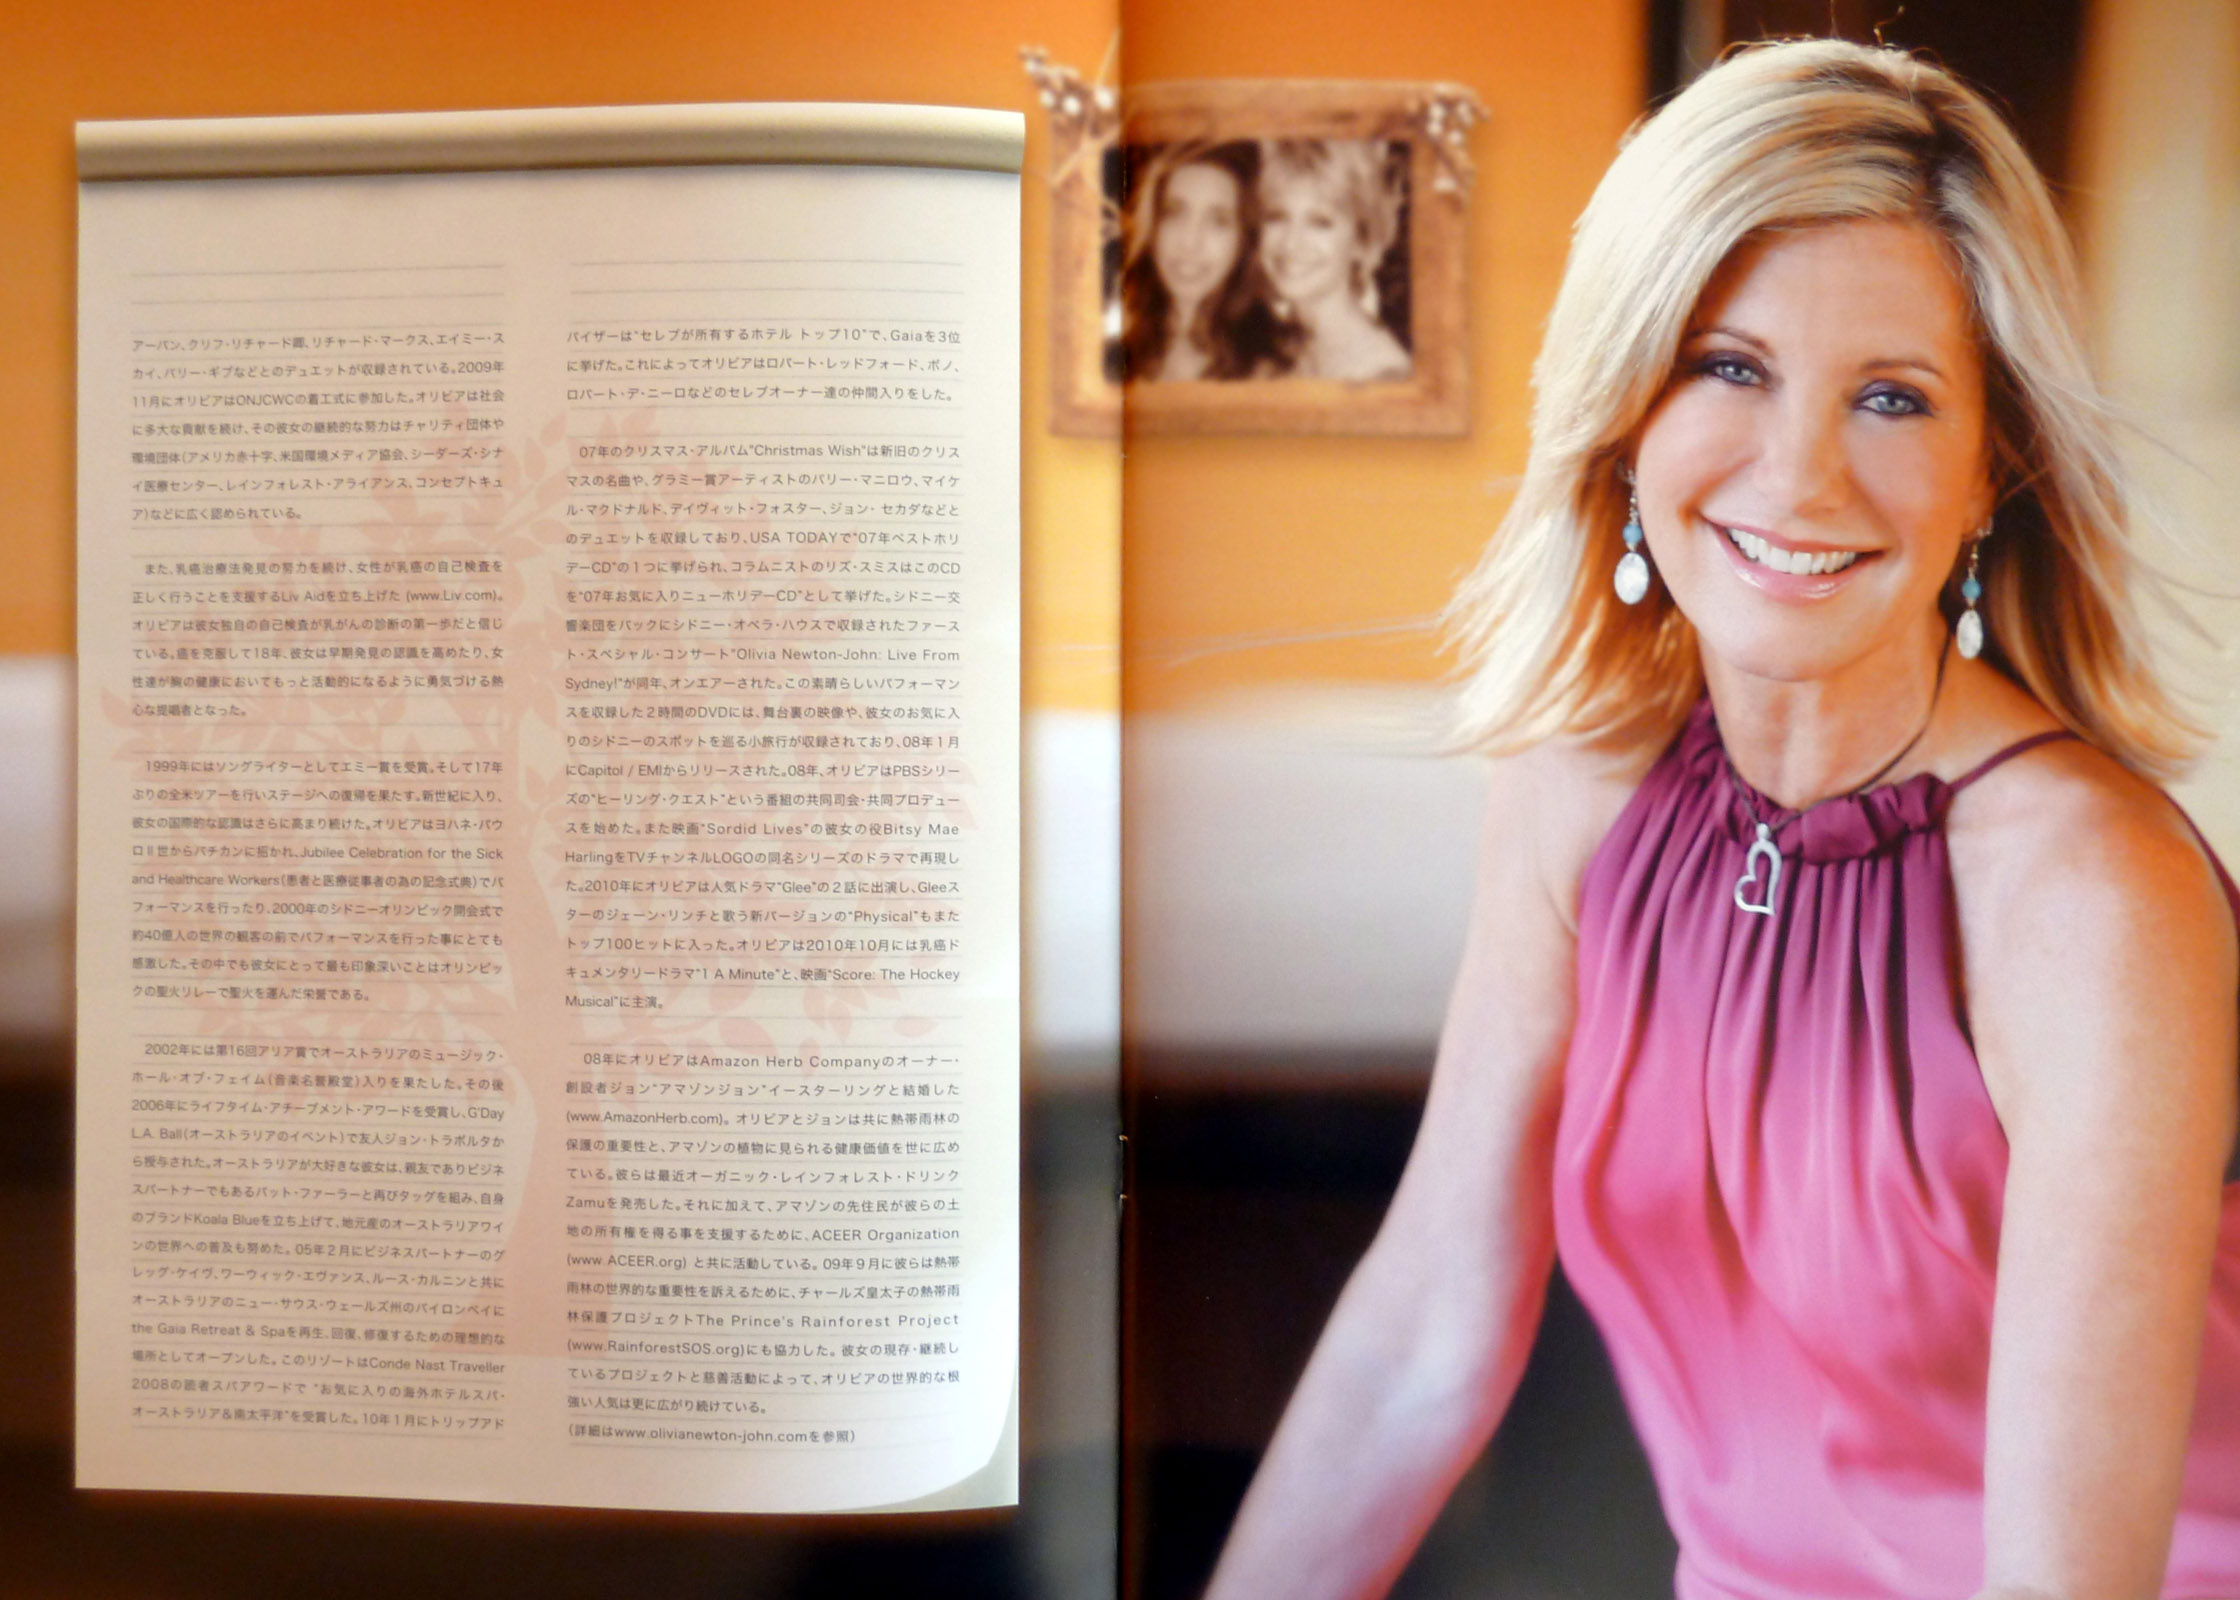 アーバン、クリフ・リチャード卿、リチャード・マークス、エイミー・ス
カイ、バリー・ギブなどとのデュエットが収録されている。2009年
11月にオリビアはONJCWCの着工式に参加した。オリビアは社会
に多大な貢献を続け、その彼女の継続的な努力はチャリティ団体や
環境団体(アメリカ赤十字、米国環境メディア協会、シーダーズ・シナ
イ医療センター、レインフォレスト・アライアンス、コンセプトキュ
ア)などに広く認められている。
また、乳癌治療法発見の努力を続け、女性が乳癌の自己検査を
正しく行うことを支援するLiv Aidを立ち上げた (www.Liv.com)。
オリビアは彼女独自の自己検査が乳がんの診断の第一歩だと信じ
ている。癌を克服して18年、彼女は早期発見の認識を高めたり、女
性達が胸の健康においてもっと活動的になるように勇気づける熱
心な提唱者となった。
1999年にはソングライターとしてエミー賞を受賞。そして17年
ぶりの全米ツアーを行いステージへの復帰を果たす。新世紀に入り、
彼女の国際的な認識はさらに高まり続けた。オリビアはヨハネ・パウ
ロⅡ世からバチカンに招かれ、Jubilee Celebration for the Sick
and Healthcare Workers(患者と医療従事者の為の記念式典)でパ
フォーマンスを行ったり、2000年のシドニーオリンピック開会式で
約40億人の世界の観客の前でパフォーマンスを行った事にとても
感激した。その中でも彼女にとって最も印象深いことはオリンピッ
クの聖火リレーで聖火を運んだ栄誉である。
2002年には第16回アリア賞でオーストラリアのミュージック・
ホール・オブ・フェイム(音楽名誉殿堂)入りを果たした。その後
2006年にライフタイム・アチーブメント・アワードを受賞し、G'Day
L.A. Ball(オーストラリアのイベント)で友人ジョン・トラボルタか
ら授与された。オーストラリアが大好きな彼女は、親友でありビジネ
スパートナーでもあるパット・ファーラーと再びタッグを組み、自身
のブランドKoala Blueを立ち上げて、地元産のオーストラリアワイ
ンの世界への普及も努めた。05年2月にビジネスパートナーのグ
レッグ・ケイヴ、ワーウィック・エヴァンス、ルース・カルニンと共に
オーストラリアのニュー・サウス・ウェールズ州のバイロンベイに
the Gaia Retreat & Spaを再生、回復、修復するための理想的な
場所としてオープンした。このリゾートはConde Nast Traveller
2008の読者スパアワードで "お気に入りの海外ホテルスパ・
オーストラリア&南太平洋"を受賞した。10年1月にトリップアド
バイザーは"セレブが所有するホテル トップ10"で、Gaiaを3位
に挙げた。これによってオリビアはロバート・レッドフォード、ボノ、
ロバート・デ・ニーロなどのセレブオーナー達の仲間入りをした。
07年のクリスマス・アルバム"Christmas Wish"は新旧のクリス
マスの名曲や、グラミー賞アーティストのバリー・マニロウ、マイケ
ル・マクドナルド、デイヴィット・フォスター、ジョン・ セカダなどと
のデュエットを収録しており、USA TODAYで"07年ベストホリ
デーCD"の1つに挙げられ、コラムニストのリズ・スミスはこのCD
を"07年お気に入りニューホリデーCD"として挙げた。シドニー交
響楽団をバックにシドニー・オペラ・ハウスで収録されたファース
ト・スペシャル・コンサート"Olivia Newton-John: Live From
Sydney!"が同年、オンエアーされた。この素晴らしいパフォーマン
スを収録した2時間のDVDには、舞台裏の映像や、彼女のお気に入
りのシドニーのスポットを巡る小旅行が収録されており、08年1月
にCapitol / EMIからリリースされた。08年、オリビアはPBSシリー
ズの"ヒーリング・クエスト"という番組の共同司会・共同プロデュー
スを始めた。また映画"Sordid Lives"の彼女の役Bitsy Mae
HarlingをTVチャンネルLOGOの同名シリーズのドラマで再現し
た。2010年にオリビアは人気ドラマ"Glee"の2話に出演し、Gleeス
ターのジェーン・リンチと歌う新バージョンの"Physical"もまた
トップ100ヒットに入った。オリビアは2010年10月には乳癌ド
キュメンタリードラマ"1 A Minute"と、映画"Score: The Hockey
Musical"に主演。
08年にオリビアはAmazon Herb Companyのオーナー・
創設者ジョン"アマゾンジョン"イースターリングと結婚した
(www.AmazonHerb.com)。オリビアとジョンは共に熱帯雨林の
保護の重要性と、アマゾンの植物に見られる健康価値を世に広め
ている。彼らは最近オーガニック・レインフォレスト・ドリンク
Zamuを発売した。それに加えて、アマゾンの先住民が彼らの土
地の所有権を得る事を支援するために、ACEER Organization
(www.ACEER.org) と共に活動している。09年9月に彼らは熱帯
雨林の世界的な重要性を訴えるために、チャールズ皇太子の熱帯雨
林保護プロジェクトThe Prince's Rainforest Project
(www.RainforestSOS.org)にも協力した。彼女の現存・継続し
ているプロジェクトと慈善活動によって、オリビアの世界的な根
強い人気は更に広がり続けている。
(詳細はwww.olivianewton-john.comを参照)